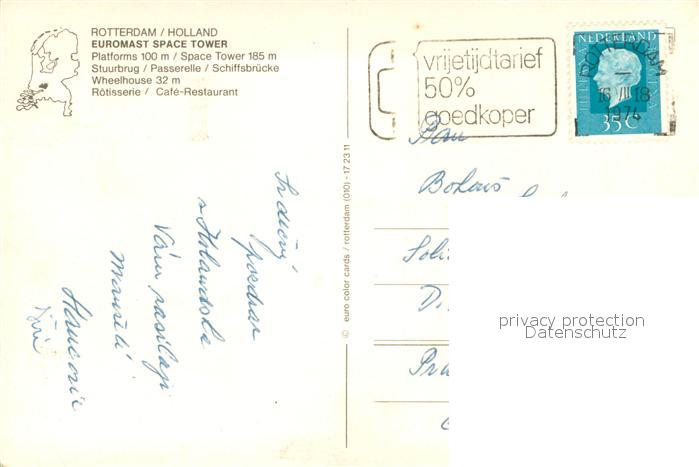 ROTTERDAM / HOLLAND
EUROMAST SPACE TOWER
Platforms 100 m / Space Tower 185 m
Stuurbrug / Passerelle / Schiffsbrücke
Wheelhouse 32 m
Rôtisserie / Café-Restaurant
vrijetijdtarief
50%
goedkoper
NEDERLAND
ROTTERDAM
16 VII 18
1974
35c
© euro color cards / rotterdam (010) - 17 23 11
Srdečný
pozdrav
z Holandska
Vám zasílají
manželé
Jiří
Pan